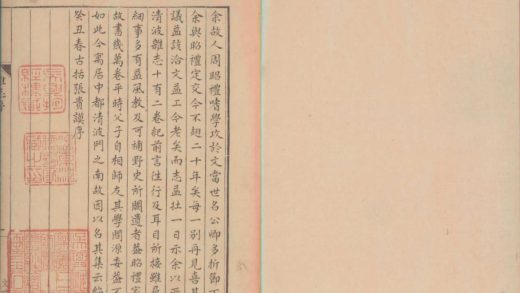 余故人周昭禮嗜學攻於文當世名公卿多折節下
余與昭禮定交今不翅二十年矣每一別再見喜其
議益該洽文益工今老矣而志益壯一日示余以
清波雜志十有二卷紀前言往行及耳目所接雖
細事多有益風教及可補野史所闕遺者蓋昭禮
故書幾萬卷平時父子自相師友其學問源委蓋
如此今寓居中都清波門之南故因以名其集云
癸丑春古括張貴謨序